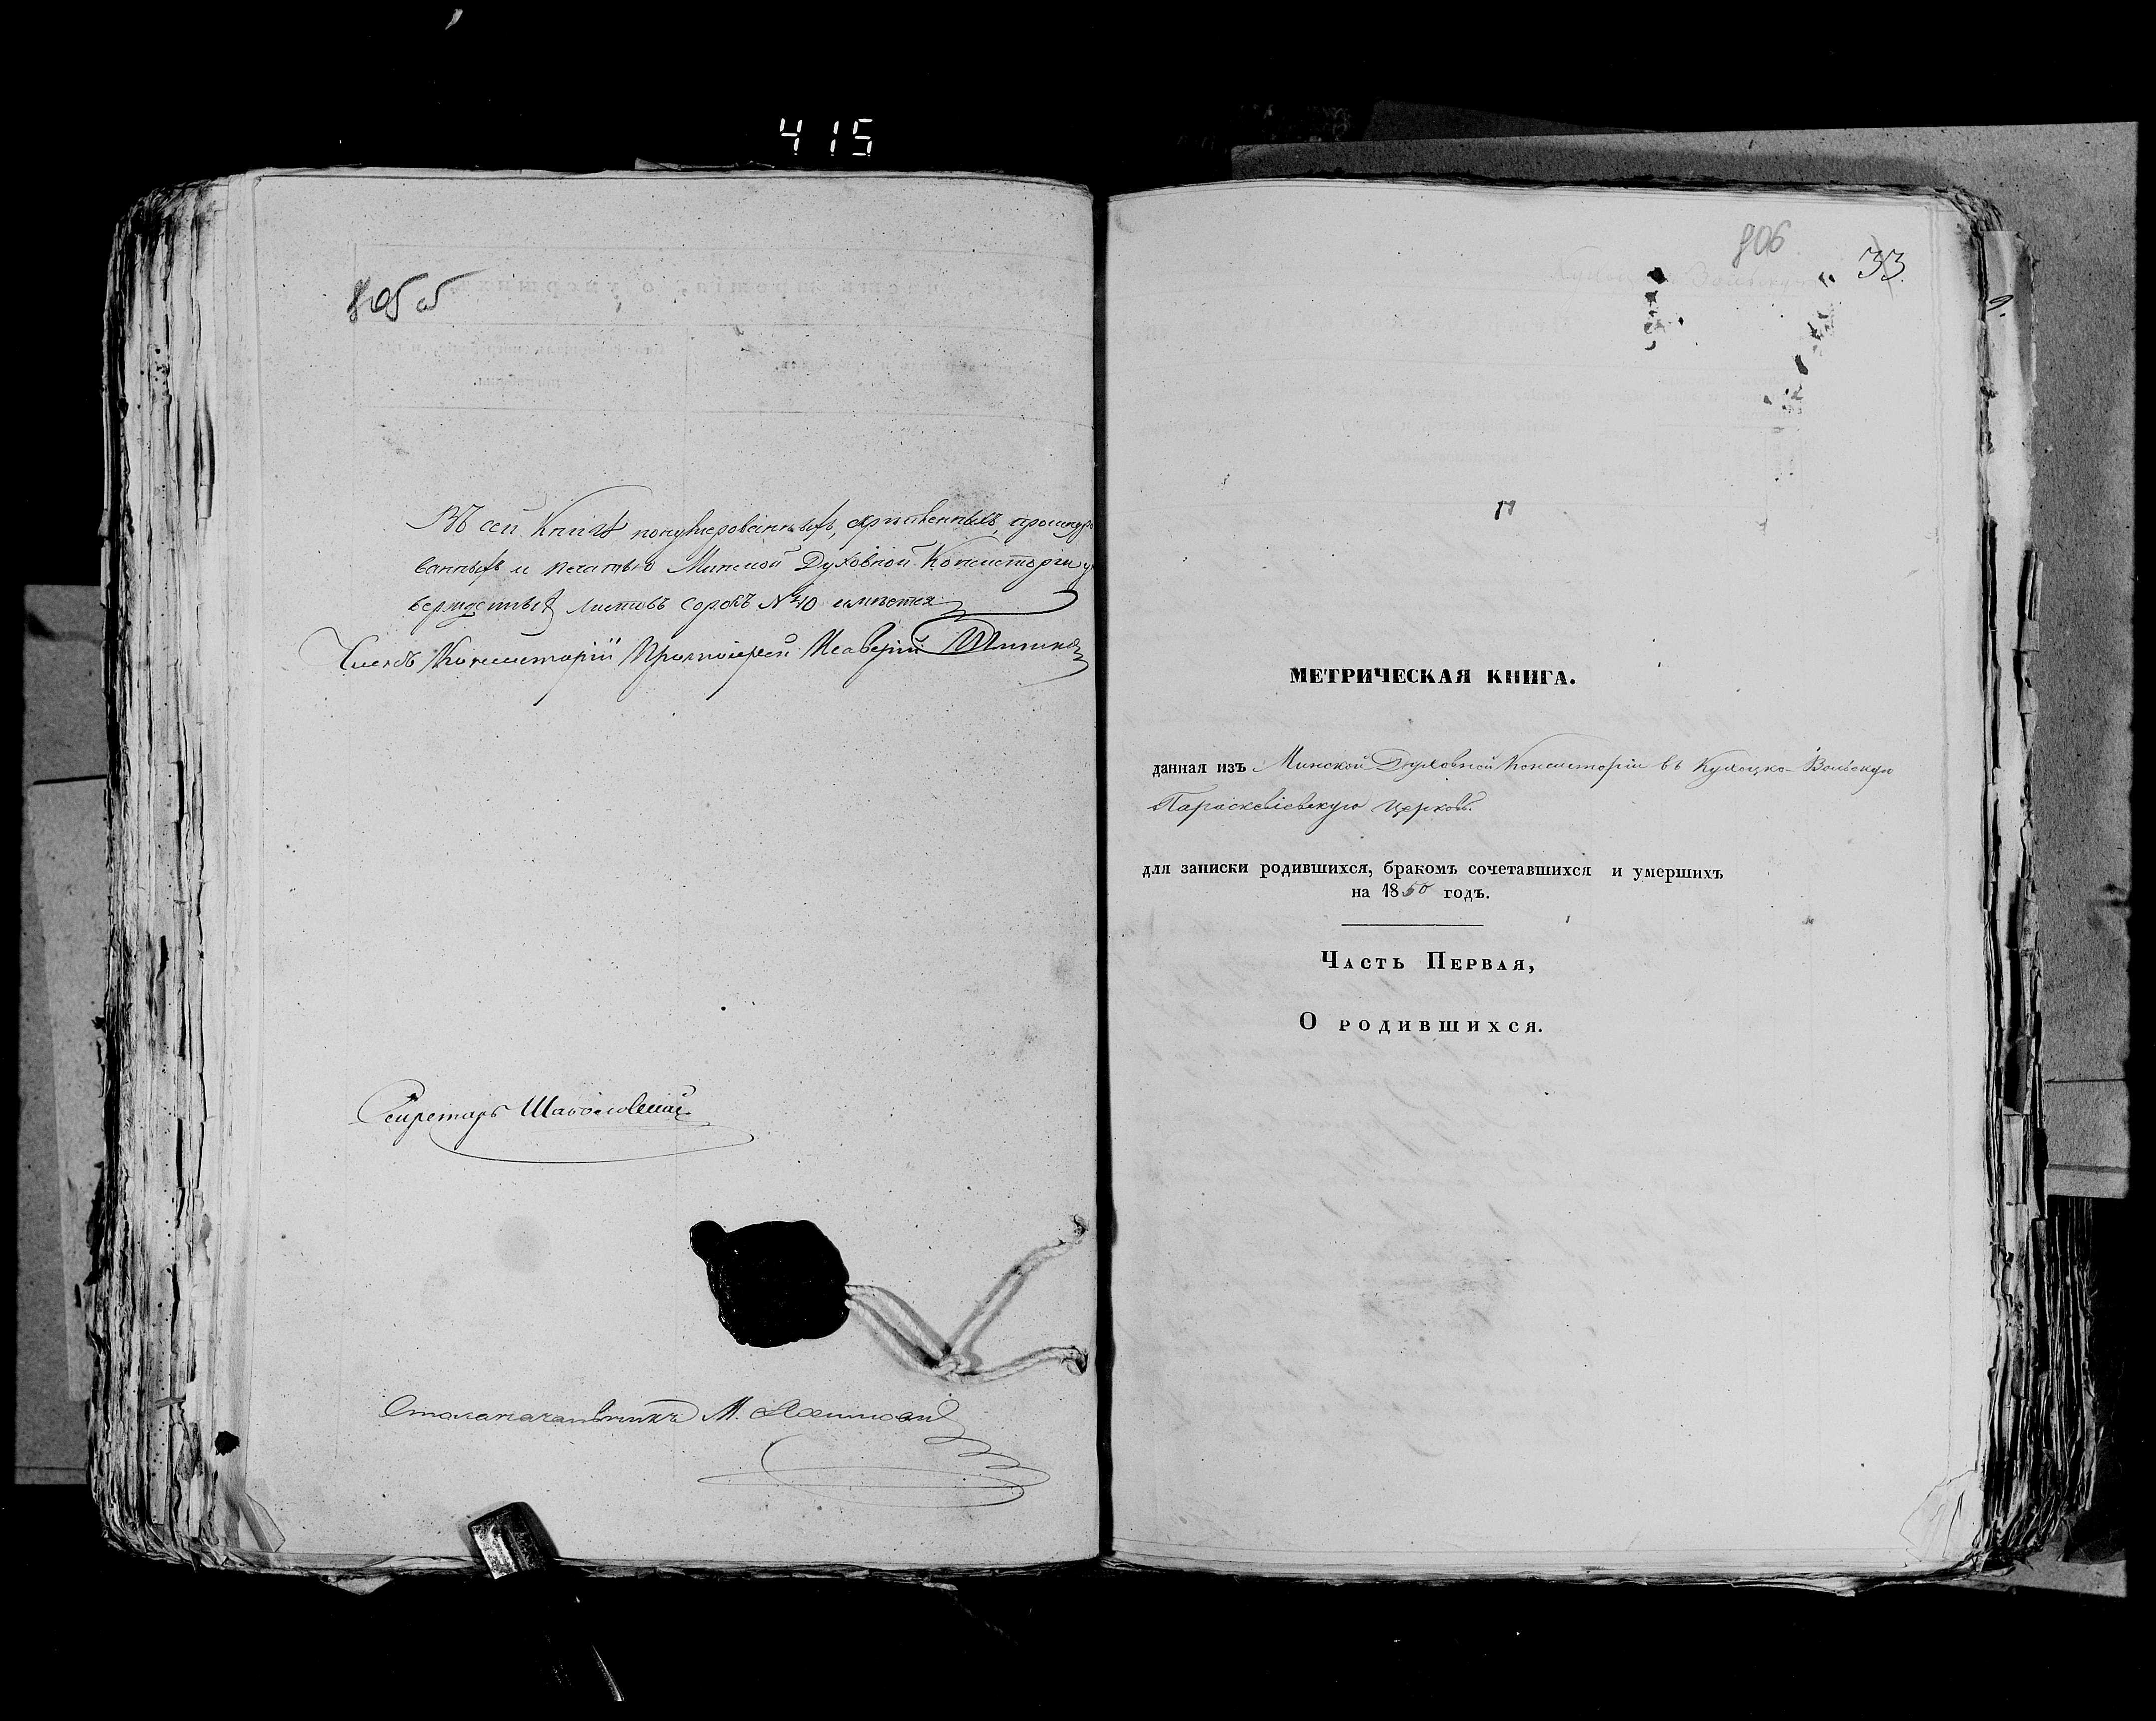 415
805 об
Въ сей Книгѣ понумерованныхъ, скрѣпленныхъ, прошнуро
ванныхъ и печатью Минской Духовной Консисторіи у
вержденныхъ листовъ сорокъ № 40 имѣется
Членъ Консисторіи Протоіерей
Секретарь
Столоначальникъ М.
806
33
МЕТРИЧЕСКАЯ КНИГА.
данная изъ Минской Духовной Консисторіи въ Кулацко-Вольскую
Параскевіевскую церковь.
для записки родившихся, бракомъ сочетавшихся и умершихъ
на 1850 годъ.
Часть Первая,
О родившихся.